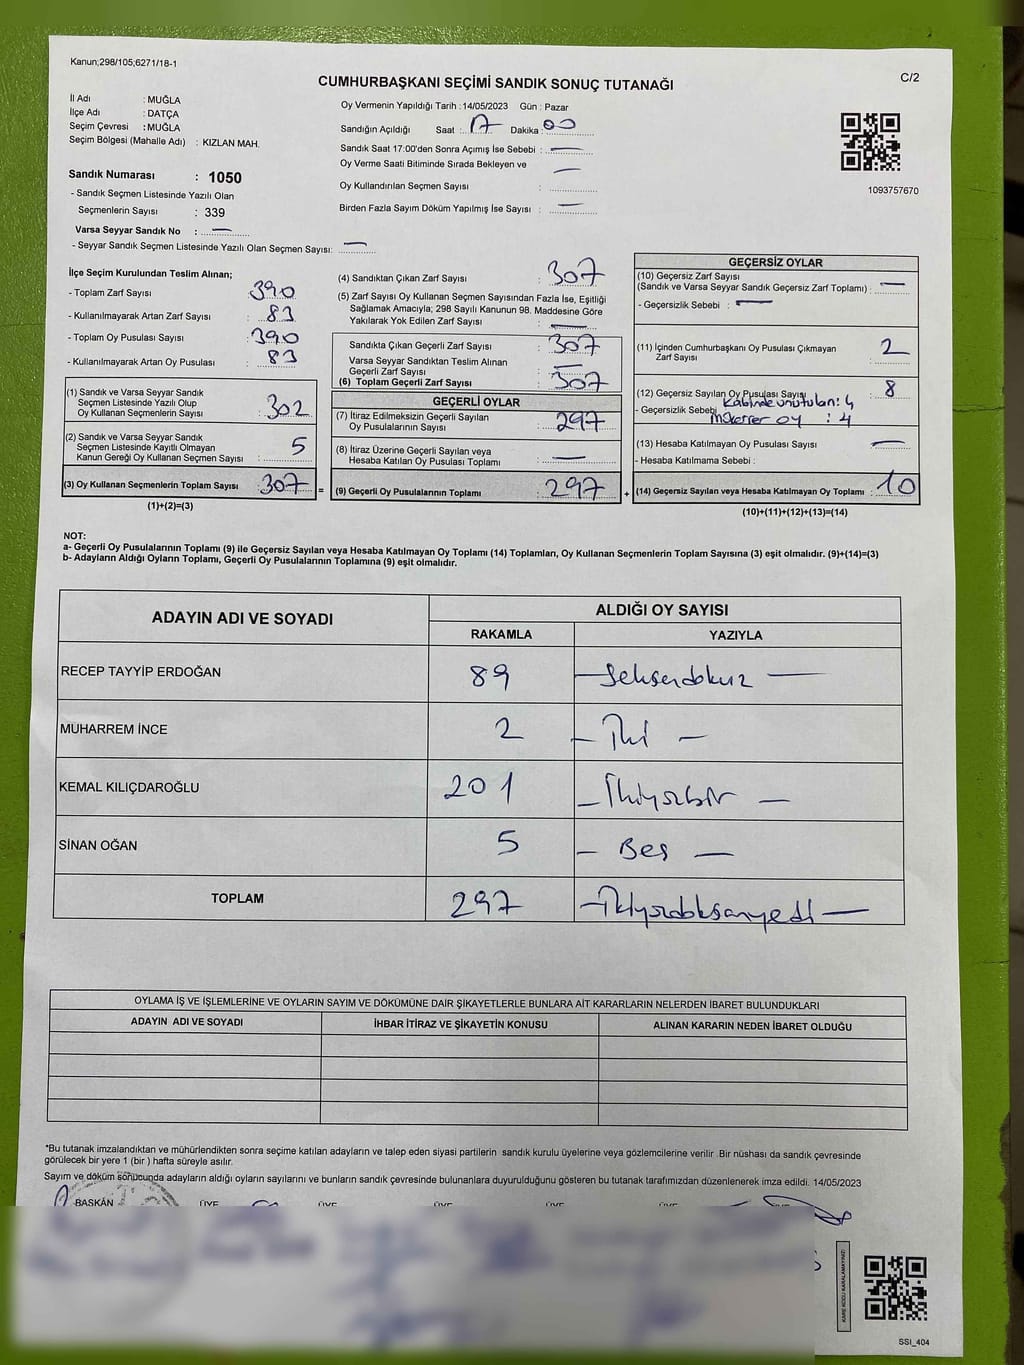 Kanun;298/105;6271/18-1
C/2
CUMHURBAŞKANI SEÇİMİ SANDIK SONUÇ TUTANAĞI
İl Adı : MUĞLA
İlçe Adı : DATÇA
Seçim Çevresi : MUĞLA
Seçim Bölgesi (Mahalle Adı) : KIZLAN MAH.
Sandık Numarası : 1050
- Sandık Seçmen Listesinde Yazılı Olan
Seçmenlerin Sayısı : 339
Varsa Seyyar Sandık No : —
- Seyyar Sandık Seçmen Listesinde Yazılı Olan Seçmen Sayısı: —
Oy Vermenin Yapıldığı Tarih : 14/05/2023 Gün : Pazar
Sandığın Açıldığı Saat : 17 Dakika : 00
Sandık Saat 17:00'den Sonra Açımış İse Sebebi : —
Oy Verme Saati Bitiminde Sırada Bekleyen ve —
Oy Kullandırılan Seçmen Sayısı :
Birden Fazla Sayım Döküm Yapılmış İse Sayısı : —
1093757670
İlçe Seçim Kurulundan Teslim Alınan;
- Toplam Zarf Sayısı : 390
- Kullanılmayarak Artan Zarf Sayısı : 83
- Toplam Oy Pusulası Sayısı : 390
- Kullanılmayarak Artan Oy Pusulası : 83
(1) Sandık ve Varsa Seyyar Sandık
Seçmen Listesinde Yazılı Olup
Oy Kullanan Seçmenlerin Sayısı : 302
(2) Sandık ve Varsa Seyyar Sandık
Seçmen Listesinde Kayıtlı Olmayan
Kanun Gereği Oy Kullanan Seçmen Sayısı : 5
(3) Oy Kullanan Seçmenlerin Toplam Sayısı : 307
(1)+(2)=(3)
(4) Sandıktan Çıkan Zarf Sayısı : 307
(5) Zarf Sayısı Oy Kullanan Seçmen Sayısından Fazla İse, Eşitliği
Sağlamak Amacıyla; 298 Sayılı Kanunun 98. Maddesine Göre
Yakılarak Yok Edilen Zarf Sayısı : —
Sandıkta Çıkan Geçerli Zarf Sayısı : 307
Varsa Seyyar Sandıktan Teslim Alınan
Geçerli Zarf Sayısı : —
(6) Toplam Geçerli Zarf Sayısı : 307
GEÇERLİ OYLAR
(7) İtiraz Edilmeksizin Geçerli Sayılan
Oy Pusulalarının Sayısı : 297
(8) İtiraz Üzerine Geçerli Sayılan veya
Hesaba Katılan Oy Pusulası Toplamı : —
= (9) Geçerli Oy Pusulalarının Toplamı : 297
GEÇERSİZ OYLAR
(10) Geçersiz Zarf Sayısı
(Sandık ve Varsa Seyyar Sandık Geçersiz Zarf Toplamı) : —
- Geçersizlik Sebebi : —
(11) İçinden Cumhurbaşkanı Oy Pusulası Çıkmayan
Zarf Sayısı : 2
(12) Geçersiz Sayılan Oy Pusulası Sayısı : 8
- Geçersizlik Sebebi Kabinde unutulan: 4
Mükerrer oy : 4
(13) Hesaba Katılmayan Oy Pusulası Sayısı : —
- Hesaba Katılmama Sebebi :
+ (14) Geçersiz Sayılan veya Hesaba Katılmayan Oy Toplamı : 10
(10)+(11)+(12)+(13)=(14)
NOT:
a- Geçerli Oy Pusulalarının Toplamı (9) ile Geçersiz Sayılan veya Hesaba Katılmayan Oy Toplamı (14) Toplamları, Oy Kullanan Seçmenlerin Toplam Sayısına (3) eşit olmalıdır. (9)+(14)=(3)
b- Adayların Aldığı Oyların Toplamı, Geçerli Oy Pusulalarının Toplamına (9) eşit olmalıdır.
ADAYIN ADI VE SOYADI ALDIĞI OY SAYISI
RAKAMLA YAZIYLA
RECEP TAYYİP ERDOĞAN 89 — Seksendokuz —
MUHARREM İNCE 2 — İki —
KEMAL KILIÇDAROĞLU 201 — İkiyüzbir —
SİNAN OĞAN 5 — Beş —
TOPLAM 297 — İkiyüzdoksanyedi —
OYLAMA İŞ VE İŞLEMLERİNE VE OYLARIN SAYIM VE DÖKÜMÜNE DAİR ŞİKAYETLERLE BUNLARA AİT KARARLARIN NELERDEN İBARET BULUNDUKLARI
ADAYIN ADI VE SOYADI İHBAR İTİRAZ VE ŞİKAYETİN KONUSU ALINAN KARARIN NEDEN İBARET OLDUĞU
*Bu tutanak imzalandıktan ve mühürlendikten sonra seçime katılan adayların ve talep eden siyasi partilerin sandık kurulu üyelerine veya gözlemcilerine verilir .Bir nüshası da sandık çevresinde
görülecek bir yere 1 (bir ) hafta süreyle asılır.
Sayım ve döküm sonucunda adayların aldığı oyların sayılarını ve bunların sandık çevresinde bulunanlara duyurulduğunu gösteren bu tutanak tarafımızdan düzenlenerek imza edildi. 14/05/2023
BAŞKAN ÜYE ÜYE ÜYE ÜYE
KARE KODU KARALAMAYINIZ!
SSI_404